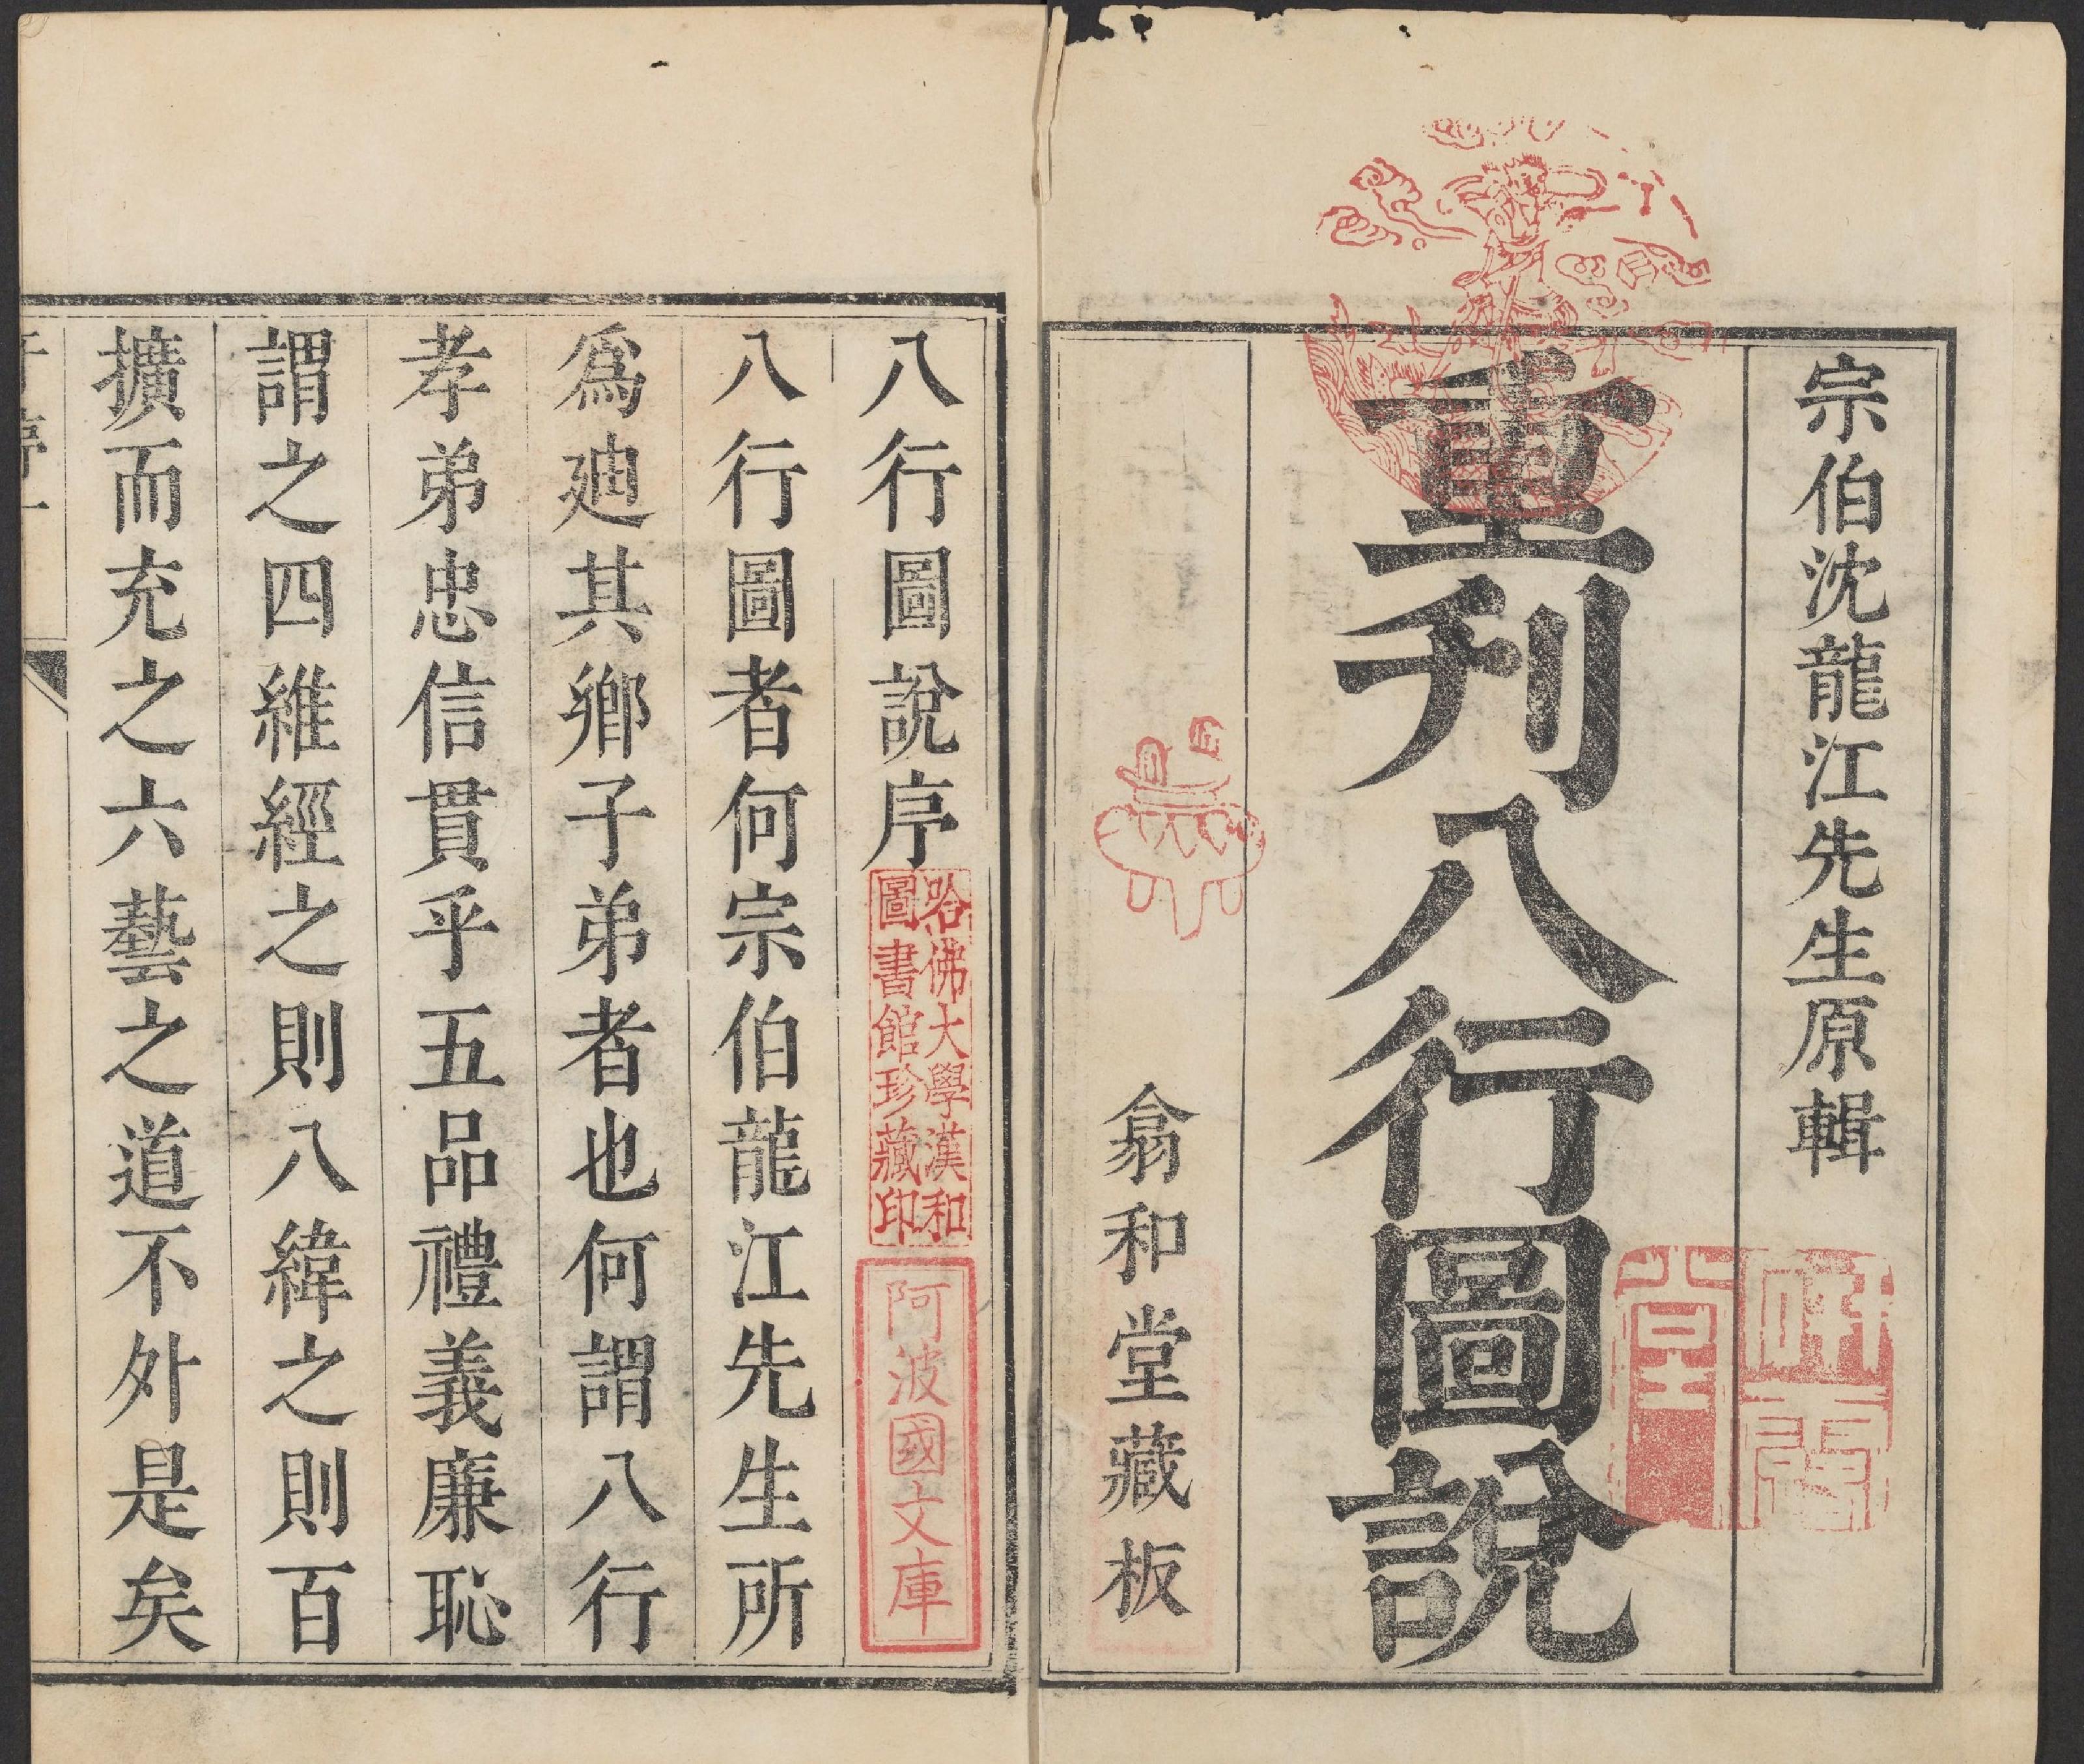 宗伯沈龍江先生原輯
重刊八行圖說
翕和堂藏板
八行圖說序
哈佛大學漢和
圖書館珍藏印
阿波國文庫
八行圖者何宗伯龍江先生所
爲廸其鄉子弟者也何謂八行
孝弟忠信貫乎五品禮義廉恥
謂之四維經之則八緯之則百
擴而充之六藝之道不外是矣